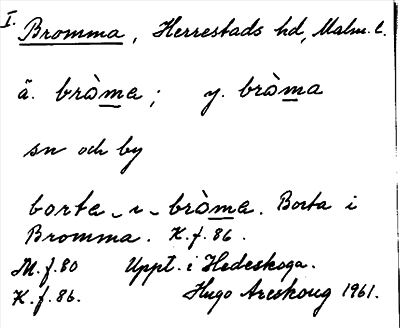 I. Bromma, Herrestads hd, Malm. l.
ä. brò̀me; y. bròma
sn och by
borta_ı_bròme. Borta i
Bromma. K.f. 86.
M.f. 80 Uppt. i Hedeskoga.
K.f. 86. Hugo Areskoug 1961.